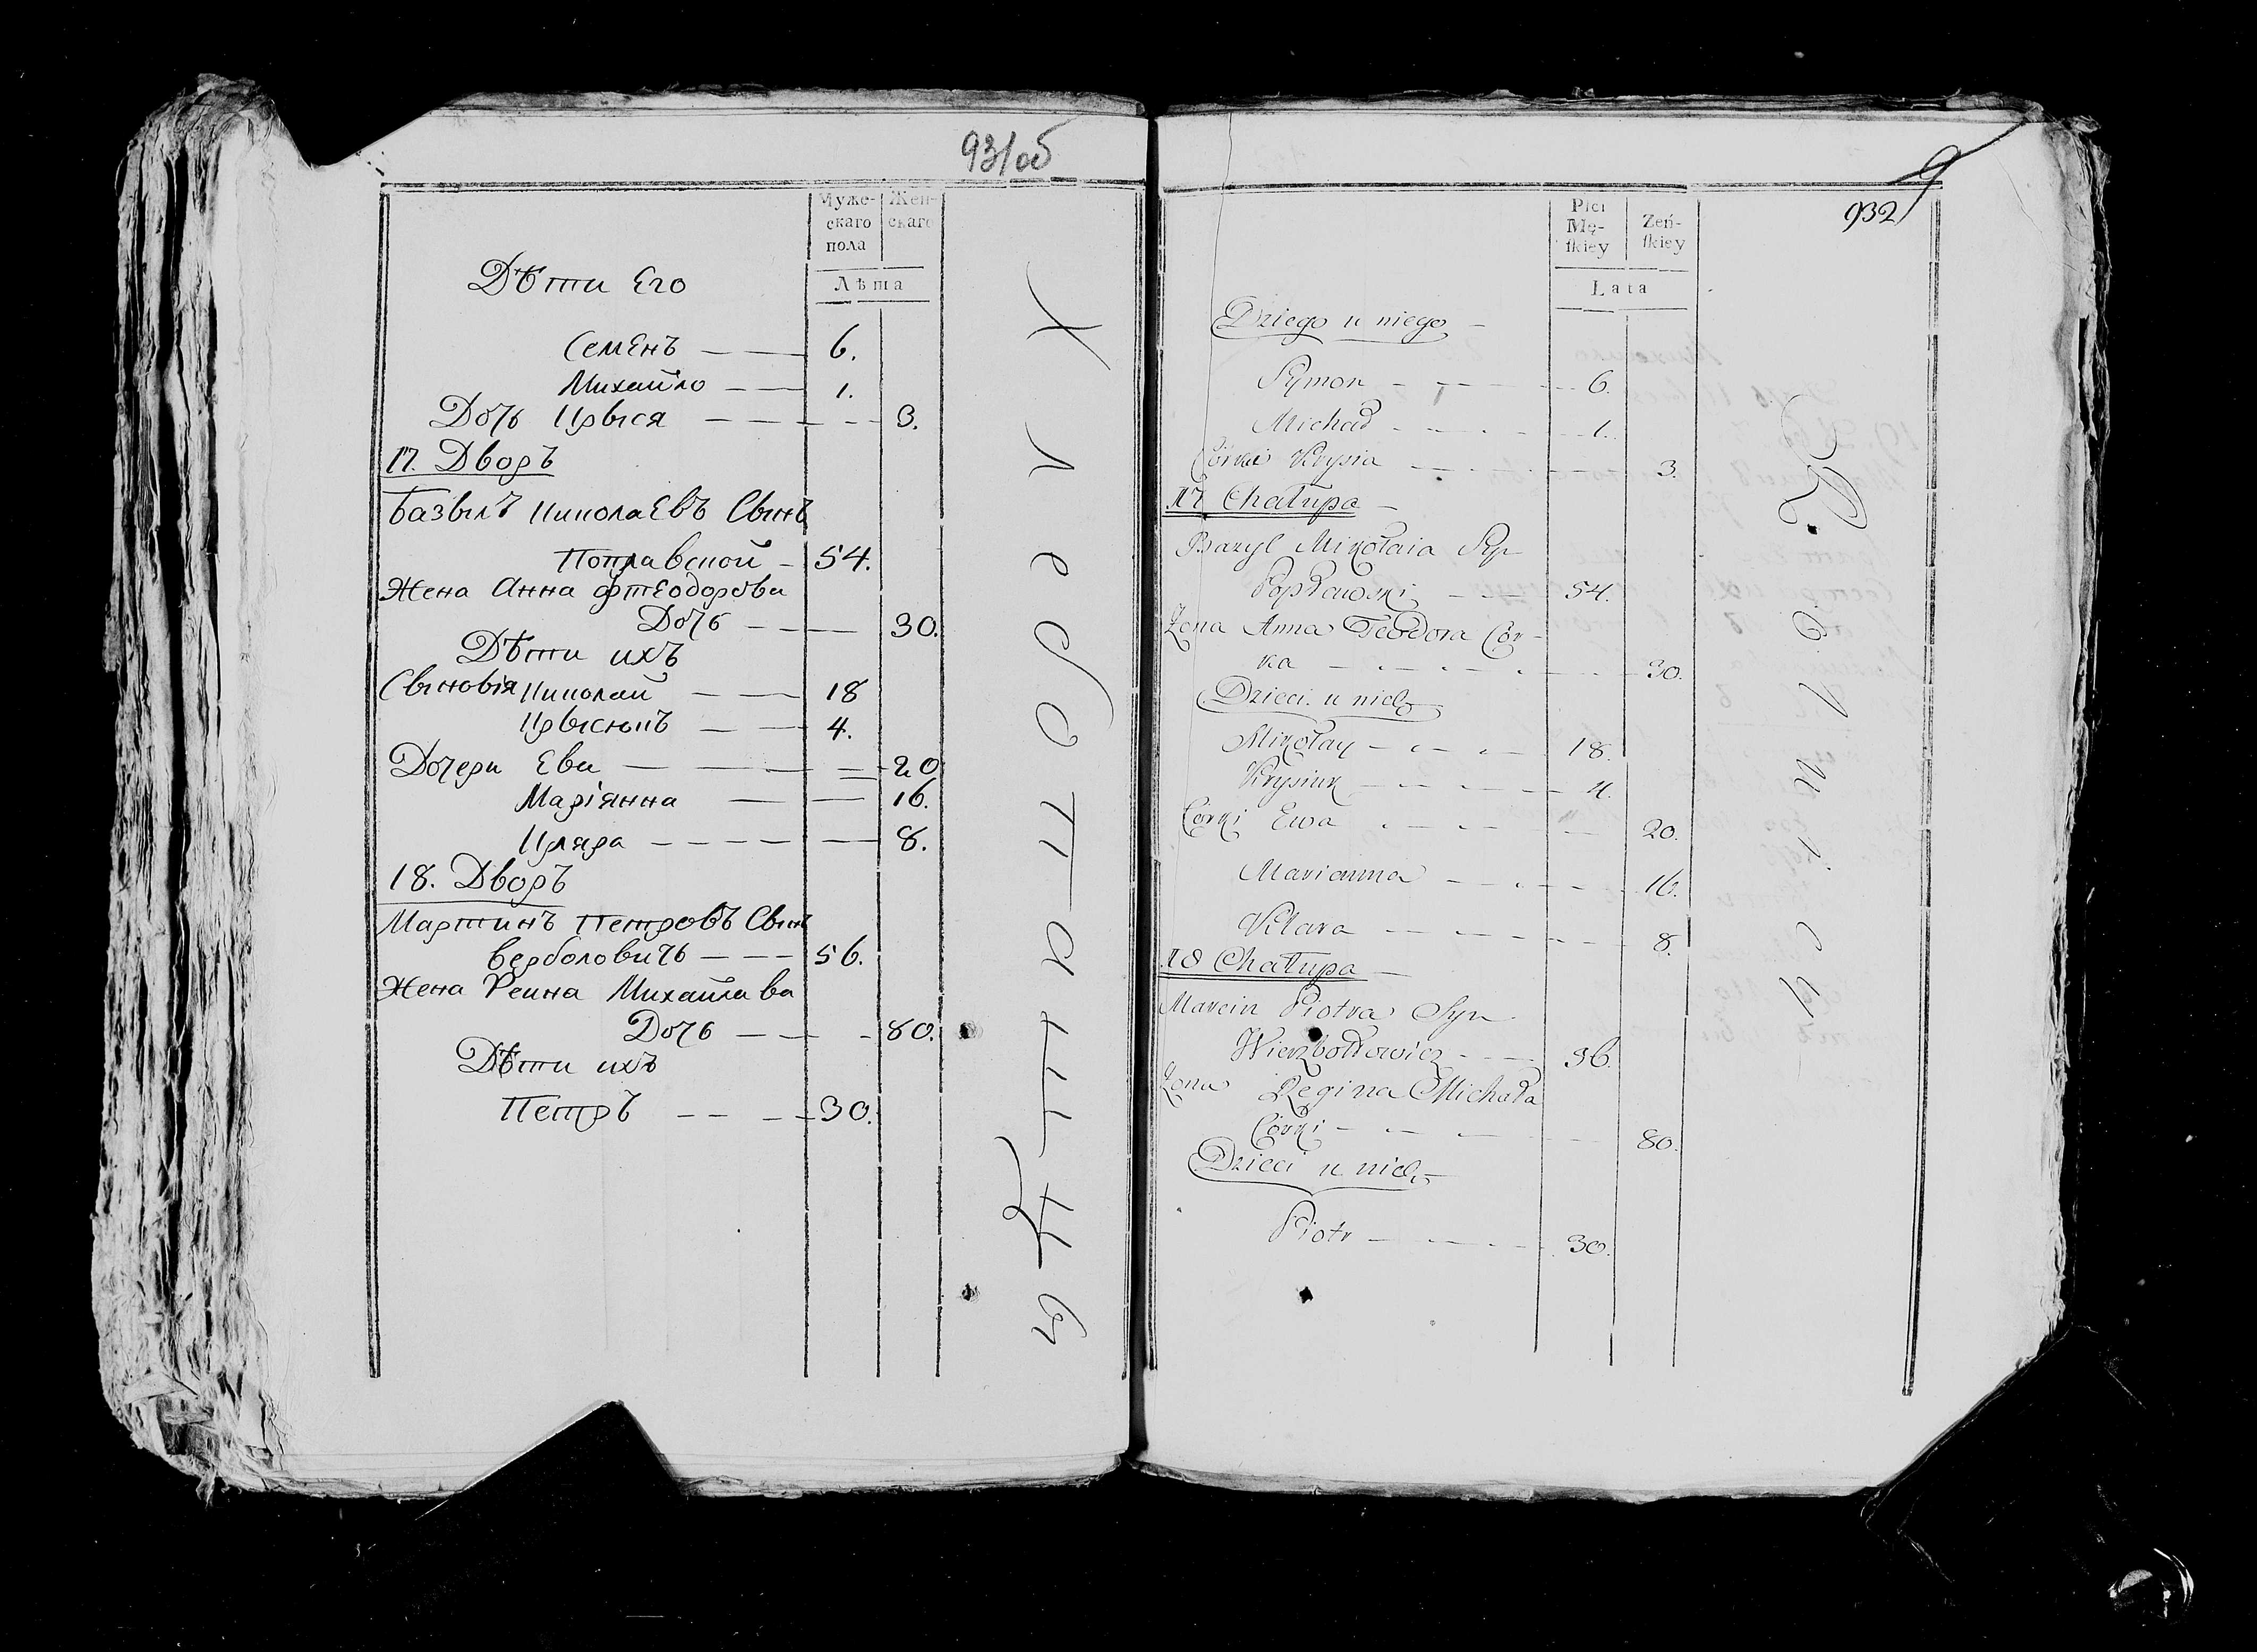 931об
Муже-
скаго
пола
Жен-
скаго
Лѣта
Дѣти Его
Семенъ — — 6.
Михайло — — 1.
Дочь Крыся — — — — 3.
17. Дворъ
Базылъ Николаевъ Сынъ
Поплавской — 54.
Жена Анна Фтеодорова
Дочь — — — 30.
Дѣти ихъ
Сыновія Николай — — 18
Крысюкъ — — 4.
Дочери Ева — — — — 20
Маріянна — — 16.
Кляра — — — — — 8.
18. Дворъ
Мартинъ Петровъ Сынъ
Верболовичь — — — 56.
Жена Реина Михайлава
Дочь — — — 80.
Дѣти ихъ
Петръ — — — 30.
Хлебопашцы
9
932
Płci
Mę-
ſkiey
Zeń-
ſkiey
Lata
Dziego u niego —
Symon — — — — 6.
Michał — — — — 1.
Córka Krysia — — — — 3.
17 Chałupa —
Bazyl Mikołaia Syn
Popławski — — 54.
Zona Anna Teodora Cór-
ka — — — — 30.
Dzieci u nich
Mikołay — — — 18.
Krysiuk — — — — 4.
Córki Ewa — — — — 20.
Marianna — — — — 16.
Klara — — — — — 8.
18 Chałupa —
Marcin Piotra Syn
Wierzbołowicz — — — 56.
Zona Regina Michała
Córki — — — — 80.
Dzieci u nich —
Piotr — — — — 30.
Rolnicy